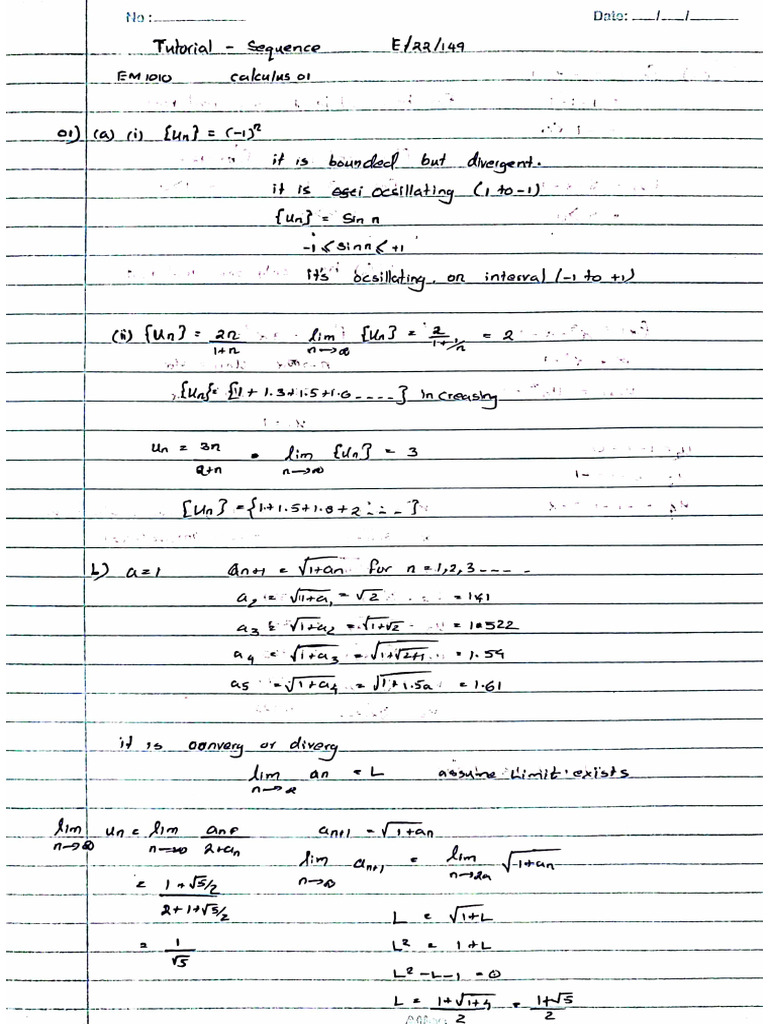 No : Date: __/__/__
Tutorial - Sequence E/22/149
EM 1010 calculus 01
01) (a) (i) {Un} = (-1)ⁿ
it is bounded but divergent.
it is ocsillating (1 to -1)
{Un} = Sin n
-1 < sin n < +1
it's ocsillating, on interval (-1 to +1)
(ii) {Un} = 2n/1+n lim n→∞ {Un} = 2/1+1/n = 2
{Un} = {1 + 1.3+1.5+1.6 ----} increasing
Un = 3n/2+n • lim n→∞ {Un} = 3
{Un} = {1+1.5+1.8+2 ---}
b) a=1 an+1 = √1+an for n=1,2,3----
a2 = √1+a1 = √2 = 1.41
a3 = √1+a2 = √1+√2 = 1.522
a4 = √1+a3 = √1+√2+1 = 1.59
a5 = √1+a4 = √1+1.5a = 1.61
it is convery or diverg
lim n→∞ an = L assume Limit exists
lim n→∞ Un = lim n→∞ an/2+an an+1 = √1+an
lim n→∞ an+1 = lim √1+an
= 1+√5/2 / 2+1+√5/2 L = √1+L
= 1/√5 L² = 1+L
L²-L-1 = 0
L = 1+√1+4 / 2 = 1+√5/2